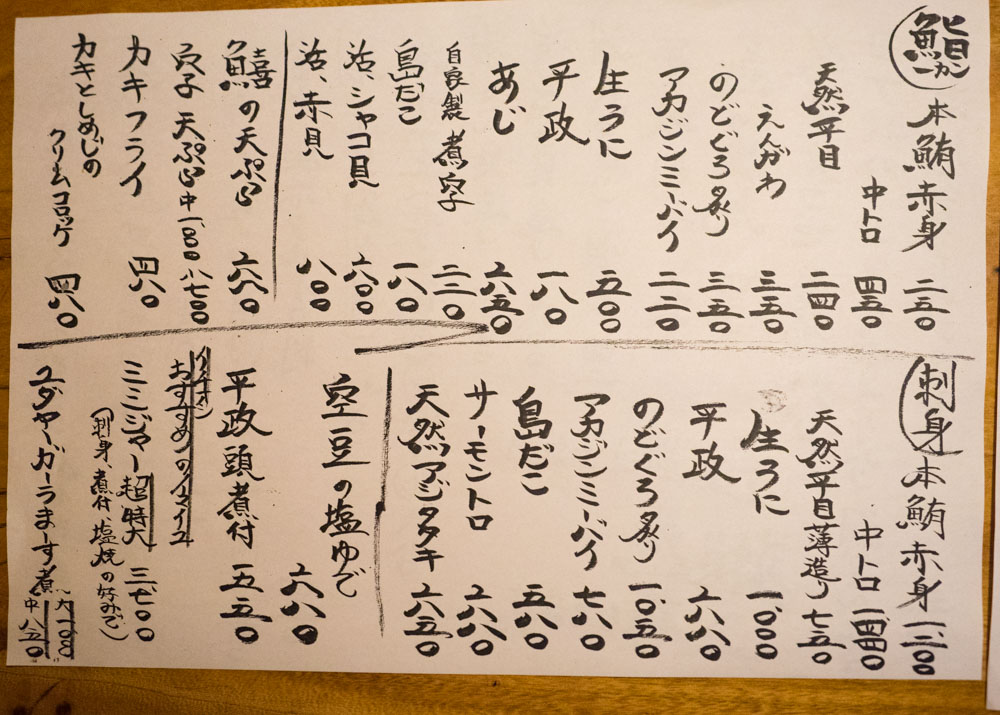 鮨 一カン
本鮪赤身 二五〇
中トロ 四五〇
天然平目 二四〇
えんがわ 三五〇
のどぐろ炙り 三五〇
アカジンミーバイ 二二〇
生うに 五〇〇
平政 一八〇
あじ
自家製 煮穴子 二二〇
島だこ 一八〇
活、シャコ貝
活、赤貝
鱚の天ぷら 六八〇
穴子天ぷら
カキフライ 四八〇
カキとしめじの
クリームコロッケ 四八〇
刺身
本鮪赤身 一、二〇〇
中トロ
天然平目薄造り 七五〇
生うに 一、〇〇〇
平政 六八〇
のどぐろ炙り 一、〇五〇
アカジンミーバイ 七八〇
島だこ 五八〇
サーモントロ 六八〇
天然アジタタキ 六八〇
空豆の塩ゆで 六八〇
平政頭煮付 五五〇
イチオシ
おすすめのイマイユ
ミミジャー超特大
(刺身、煮付 塩焼の好みで)
ユダヤーガーラまーす煮